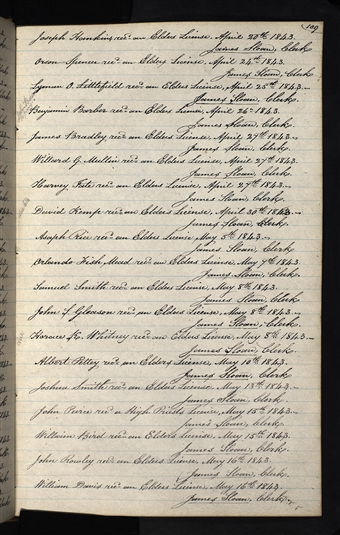 109
Joseph Hawkins recd. an Elders License, April 20th 1843.
James Sloan, Clerk
Orson Spencer recd. an Elders License, April 24th 1843.
James Sloan, Clerk.
Lyman O. Littlefield recd. an Elders License, April 25th 1843.
James Sloan, Clerk.
Benjamin Barber recd. an Elders License, April 26th 1843.
James Sloan, Clerk.
James Bradley, recd. an Elders License, April 27th 1843.
James Sloan, Clerk.
Willard G. McMullin recd. an Elders License, April 27th 1843.
James Sloan, Clerk.
Harvey recd. an Elders License, April 27th 1843.
James Sloan, Clerk.
David Kempe recd. an Elders License, April 30th 1843.
James Sloan, Clerk.
Asaph Rice recd. an Elders License, May 5th 1843.
James Sloan, Clerk.
Orlando Fish Mead recd. an Elders License, May 7th 1843.
James Sloan, Clerk.
Samuel Smith recd. an Elders License, May 8th 1843.
James Sloan, Clerk.
John S. Gleason recd. an Elders License, May 8th 1843.
James Sloan, Clerk.
Horace K. Whitney recd. an Elders License, May 8th 1843.
James Sloan, Clerk.
Albert Petty, recd. an Elders License, May 10th 1843.
James Sloan, Clerk.
Joshua Smith recd. an Elders License, May 13th 1843.
James Sloan, Clerk.
John Peirce recd. a High Priests License, May 15th 1843.
James Sloan, Clerk.
William Bird recd. an Elders License, May 15th 1843.
James Sloan, Clerk.
John Rowley recd. an Elders License, May 16th 1843.
James Sloan, Clerk.
William Davis recd. an Elders License, May 16th 1843.
James Sloan, Clerk.